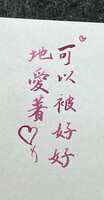 可以被好好
地愛著♡